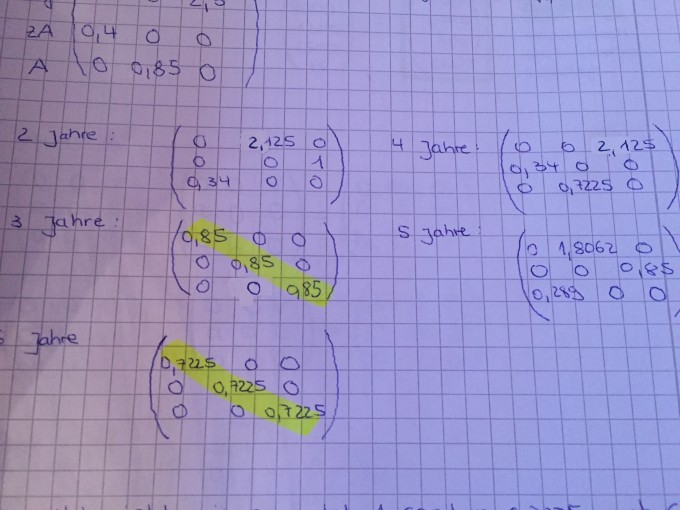 2A 0,4 0 0
A 0 0,85 0
2 Jahre: 0 2,125 0
0 0 1
0,34 0 0
4 Jahre: 0 0 2,125
0,34 0 0
0 0,7225 0
3 Jahre: 0,85 0 0
0 0,85 0
0 0 0,85
5 Jahre: 0 1,8062 0
0 0 0,85
0,289 0 0
Jahre 0,7225 0 0
0 0,7225 0
0 0 0,7225